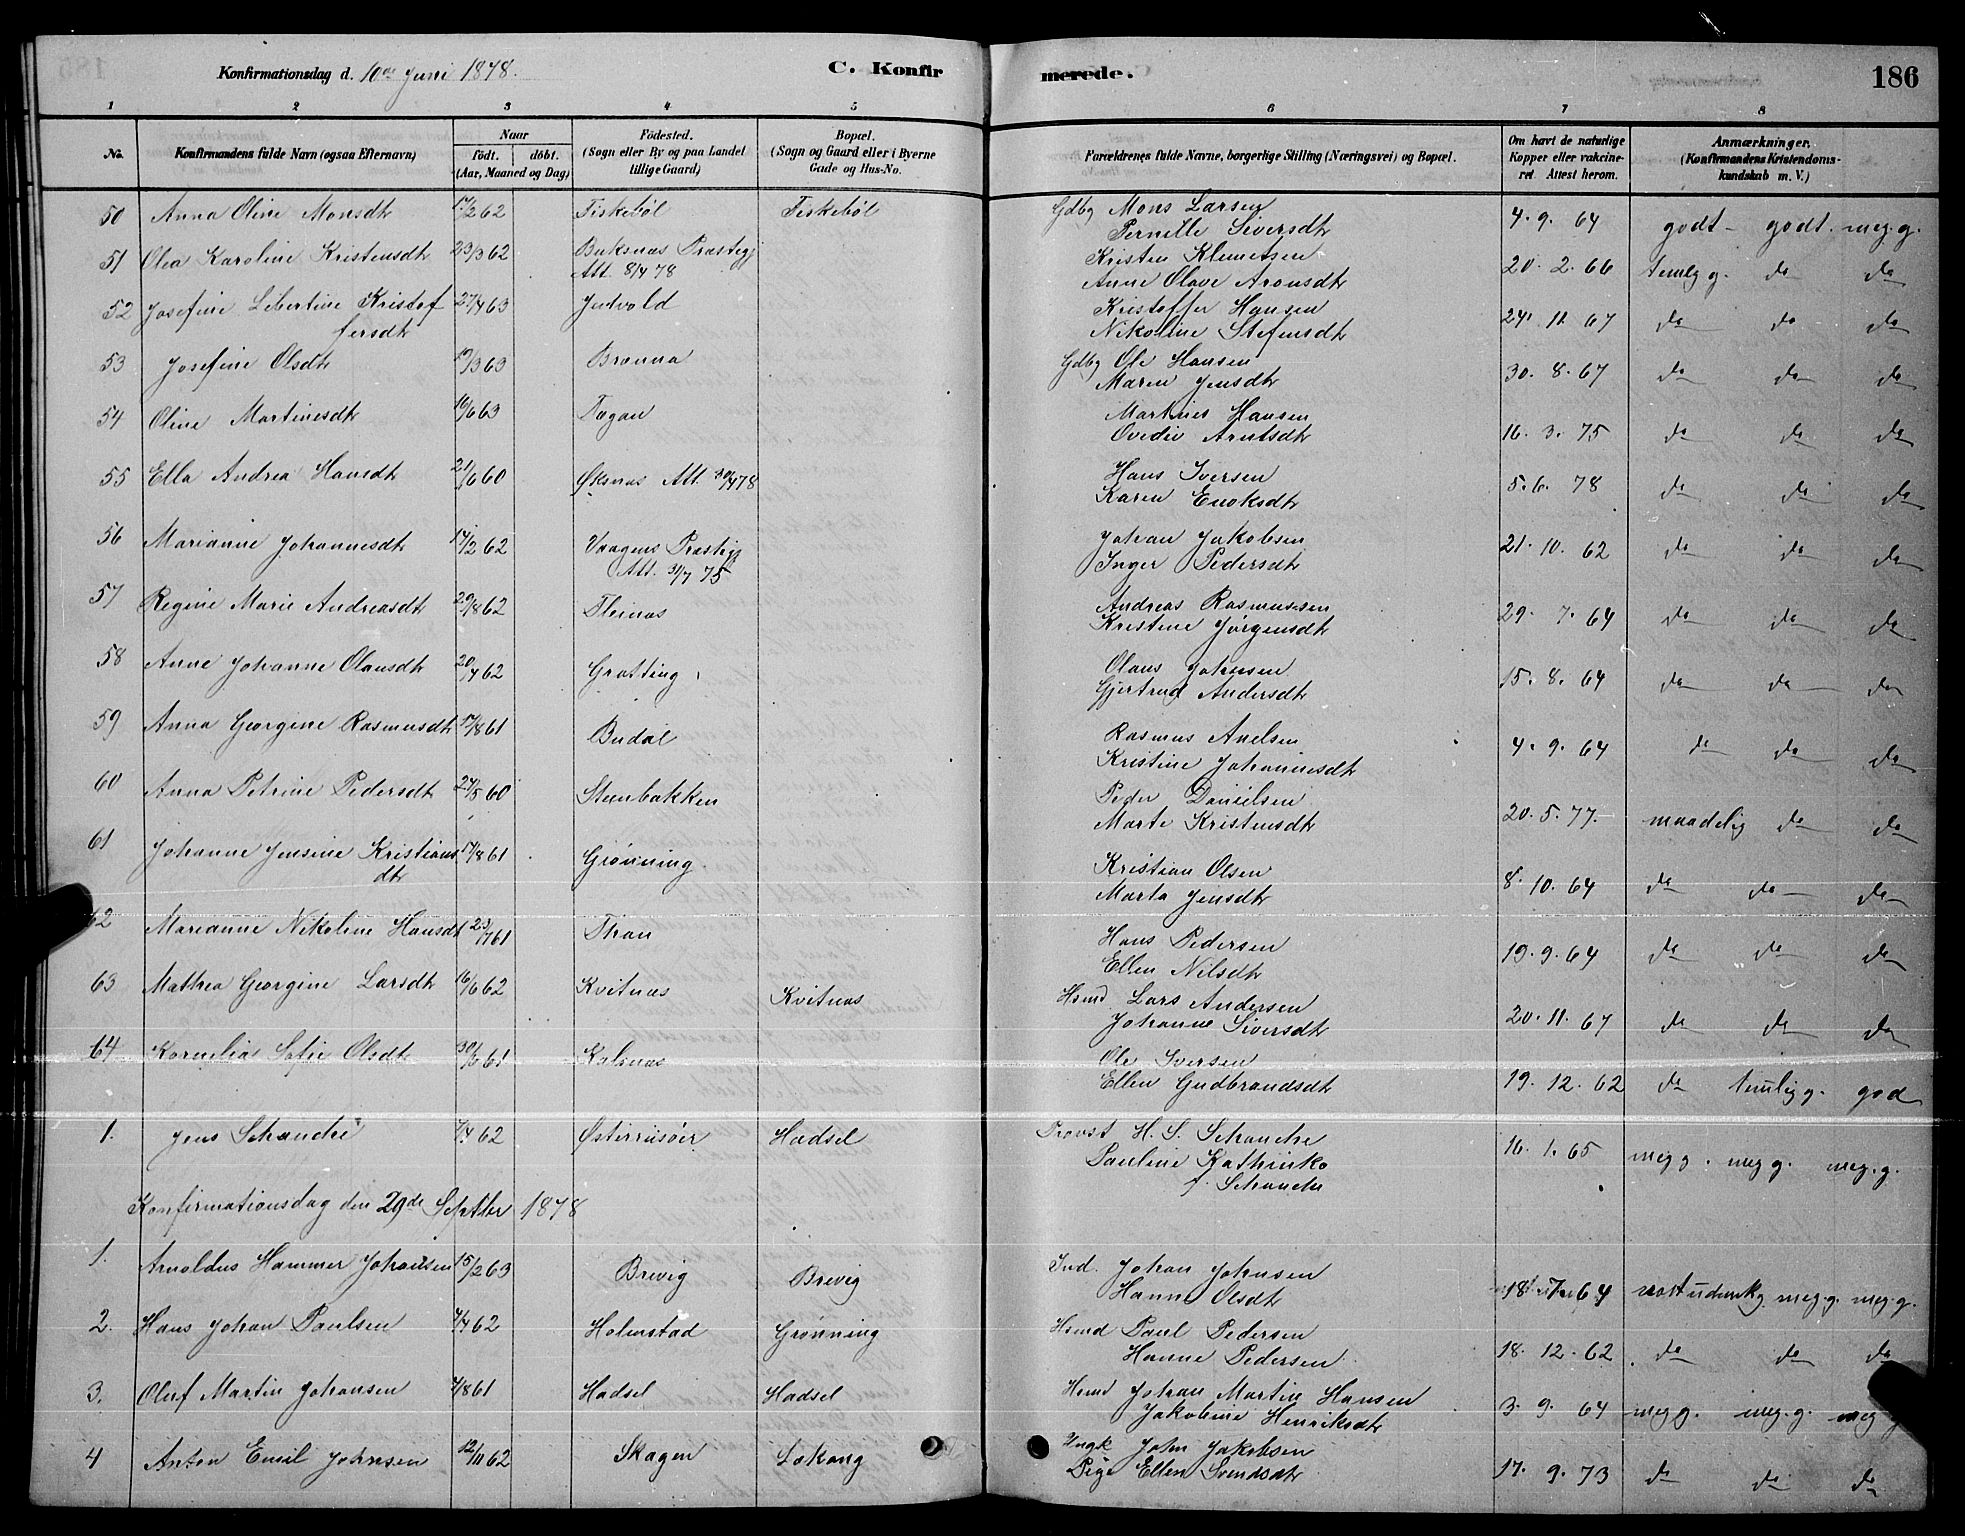 Konfirmationsdag d. 10de Juni 1878.
C. Konfirmerede.
186
1 2 3 4 5 6 7 8
No.
Konfirmandens fulde Navn (ogsaa Efternavn)
Naar
födt. döbt.
(Aar, Maaned og Dag)
Födested.
(Sogn eller By og paa Landet
tillige Gaard)
Bopæl.
(Sogn og Gaard eller i Byerne
Gade og Hus-No.
Forældrenes fulde Navne, borgerlige Stilling (Næringsvei) og Bopæl.
Om havt de naturlige
Kopper eller vakcine-
ret. Attest herom.
Anmærkninger.
(Konfirmandens Kristendoms-
kundskab m. V.)
50 Anna Oline Monsdtr 17/2 62 Fiskebøl Fiskebøl Gdbg Mons Larsen 4. 9. 64 godt godt meg. g.
Pernille Siversdtr
51 Olea Karoline Kristensdtr 23/3 62 Buksnæs Præstegj Kristen Klemetsen 20. 2. 66 temlg g. do do
Att. 8/4 78 Anne Olave Aronsdtr
52 Josefine Libertine Kristof 27/4 63 Jndvold Kristoffer Hansen 24. 11. 67 do do do
fersdtr Nikoline Stefensdtr
53 Josefine Olsdtr 19/3 63 Brænna Gdbg Ole Hansen 30. 8. 67 do do do
Maren Jensdtr
54 Oline Martinesdtr 16/6 63 Tøgan Martines Hansen 16. 3. 75 do do do
Ovedie Arntsdtr
55 Ella Andrea Hansdtr 21/6 60 Øksnæs Att. 30/4 78 Hans Iversen 5. 6. 78 do do do
Karen Enoksdtr
56 Marianne Johannesdtr 14/2 62 Vaagens Præstegj Johan Jakobsen 21. 10. 62 do do do
Att. 31/7 75 Inger Pedersdtr
57 Regine Marie Andreasdtr 29/8 62 Fleinæs Andreas Rasmussen 29. 7. 64 do do do
Kristine Jørgensdtr
58 Anne Johanne Olausdtr 20/4 62 Grøtting Olaus Johnsen 15. 8. 64 do do do
Gjertrud Andersdtr
59 Anna Georgine Rasmusdtr 17/8 61 Budal Rasmus Axelsen 4. 9. 64 do do do
Kristine Johannesdtr
60 Anna Petrine Pedersdtr 27/5 60 Steenbakken Peder Danielsen 20. 5. 77. maadelig do do
Marte Kristensdtr
61 Johanne Jensine Kristians 17/8 61 Grønning Kristian Olsen 8. 10. 64 do do do
dtr Marta Jensdtr
62 Marianne Nikoline Hansdtr 23/7 61 Thran Hans Pedersen 19. 9. 64 do do do
Ellen Nilsdtr
63 Mathea Georgine Larsdtr 16/6 62 Kvitnæs Kvitnæs Hsmd Lars Andersen 20. 11. 67 do do do
Johanne Siversdtr
64 Kornelia Sofie Olsdtr 30/6 61 Kalsnæs Ole Iversen
Ellen Gudbrandsdtr 19. 12. 62 do temlig g. god
1. Jens Schanche 7/4 62 Østerriisöer Hadsel Provst H. S. Schanche 16. 1. 65 meg g. meg g. meg. g.
Pauline Kathinka
f. Schanche
Konfirmationsdag den 29de Septbr 1878
1. Arnoldus Hammer Johansen 15/2 63 Brevig Brevig Ind. Johan Johnsen
Hanna Olsdtr 18. 7. 64 nost udmrk g meg. g. meg. g.
2. Hans Johan Paulsen 4/4 62 Holmstad Grønning Hsmd Paul Pedersen
Hanne Pedersen 18. 12. 62 do do do
3. Oluf Martin Johansen 4/8 61 Hadsel Hadsel Hsmd Johan Martin Hansen 3. 9. 64 meg g. meg. g. meg g
Jakobine Henriksdtr
4 Anton Emil Johnsen 12/11 62 Skagen Løkang Ungk John Jakobsen
Pige Ellen Svendsdtr 17. 9. 73 do do do